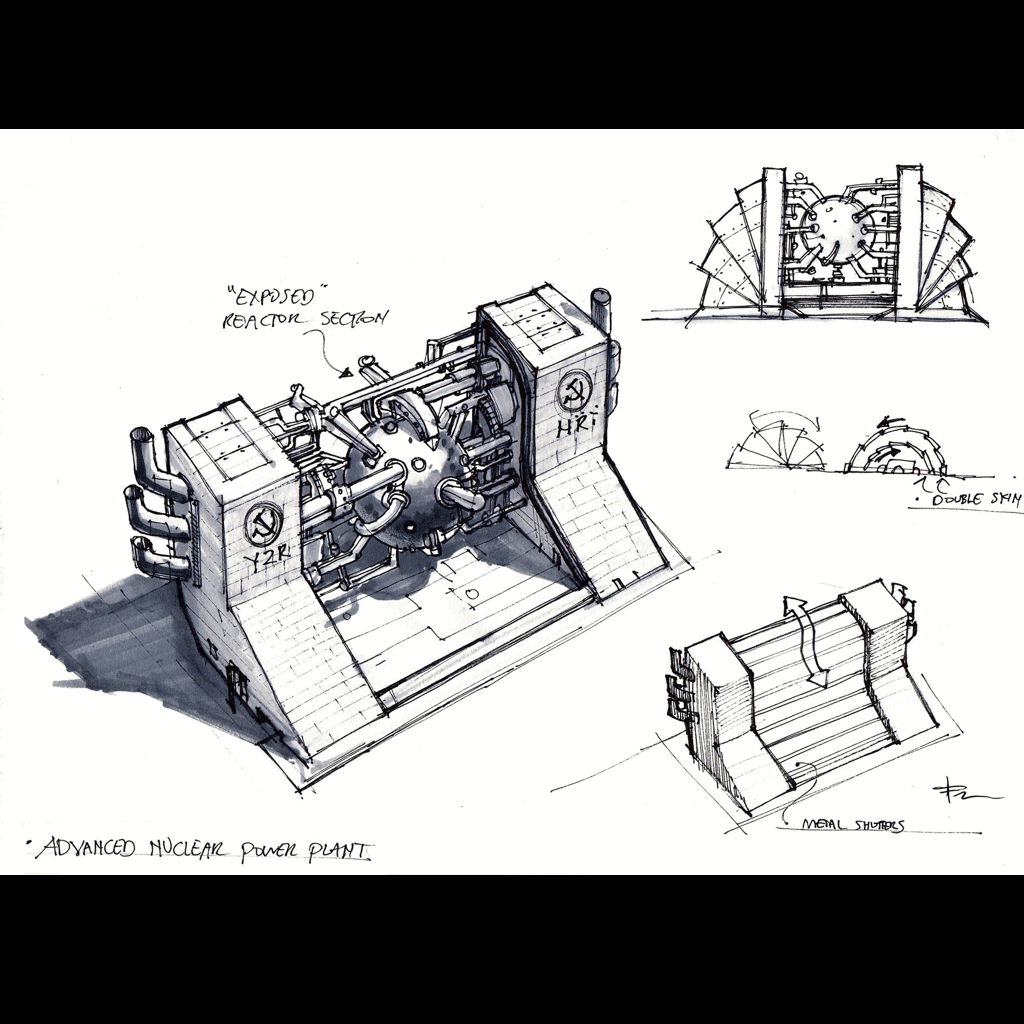 "EXPOSED"
REACTOR SECTION
HRi
YZR
• DOUBLE SKIN
METAL SHUTTERS
• ADVANCED NUCLEAR POWER PLANT